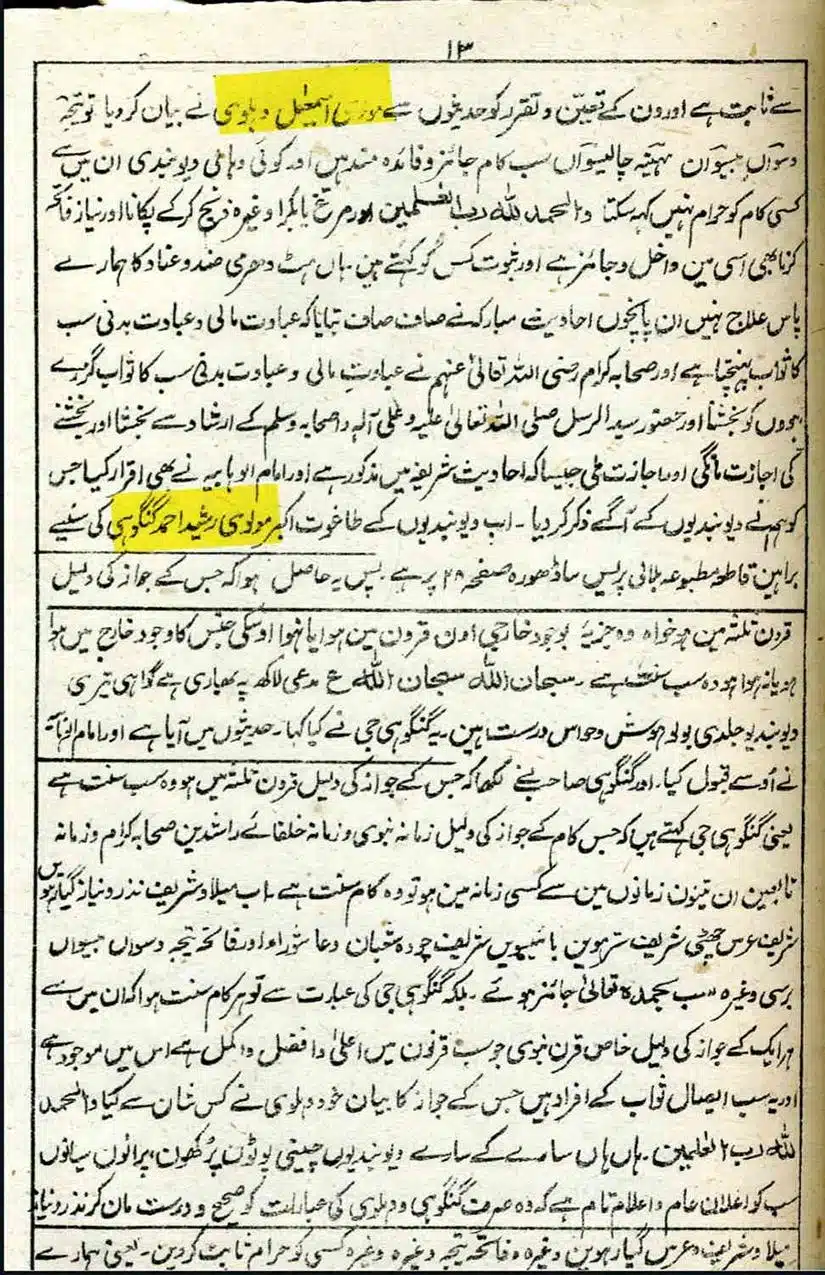 ۱۳
سے ثابت ہے اور ون کے تعین و تقرر کو حدیثوں سے مولوی اسمعیل دہلوی نے بیان کر دیا تو تیجہ
دسواں بیسواں مہینہ چالیسواں سب کام جائز و فائدہ مند ہیں اور کوئی وہابی دیوبندی ان میں سے
کسی کام کو حرام نہیں کہہ سکتا والحمد للہ رب العلمین اور مرغ یا بکرا وغیرہ ذبح کر کے پکانا اور نیاز فاتحہ
کرنا بھی اسی مین داخل و جائز ہے اور ثبوت کس کو کہتے ہین ہاں ہٹ دھرمی ضد و عناد کا ہمارے
پاس علاج نہیں ان پانچوں احادیث مبارکہ نے صاف صاف بتایا کہ عبادت مالی و عبادت بدنی سب
کا ثواب پہنچتا ہے اور صحابہ کرام رضی اللہ تعالیٰ عنہم نے عبادت مالی و عبادت بدنی سب کا ثواب گزرے
ہووں کو بخشا اور حضور سید الرسل صلی اللہ تعالیٰ علیہ وعلی آلہ واصحابہ وسلم کے ارشاد سے بخشا اور بخشنے
کی اجازت مانگی اور اجازت ملی جیسا کہ احادیث شریفہ میں مذکور ہے اور امام الوہابیہ نے بھی اقرار کیا جس
کو ہم نے دیوبندیوں کے آگے ذکر کر دیا ۔ اب دیوبندیوں کے طاغوت اکبر مولوی رشید احمد گنگوہی کی سنیے
براہین قاطعہ مطبوعہ بلالی پریس ساڈھورہ صفحہ ۲۸ پر ہے پس یہ حاصل ہوا کہ جس کے جواز کی دلیل
قرون ثلثہ مین ہو خواہ وہ جزیہ بوجود خارجی اون قرون مین ہوا یا نہوا اوسکی جنس کا وجود خارج میں ہوا
ہو یا نہ ہوا ہو وہ سب سنت ہے ۔ سبحان اللہ سبحان اللہ ع مدعی لاکھ پہ بھاری ہے گواہی تیری
دیوبندیو جلدی بولو ہوش و حواس درست ہین ۔ یہ گنگوہی جی نے کیا کہا ۔ حدیثوں میں آیا ہے اور امام الوہابیہ
نے اُوسے قبول کیا ۔ اور گنگوہی صاحب نے لکھا کہ جس کے جواز کی دلیل قرون ثلثہ میں ہو وہ سب سنت ہے
یعنی گنگوہی جی کہتے ہیں کہ جس کام کے جواز کی دلیل زمانہ نبوی و زمانہ خلفائے راشدین صحابہ کرام و زمانہ
تابعین ان تینون زمانوں مین سے کسی زمانہ مین ہو تو وہ کام سنت ہے ۔ اب میلاد شریف نذر و نیاز گیارہویں
شریف عرس چھٹی شریف سترہوین بائیسویں شریف چودہ شعبان دعا عاشوراء اور فاتحہ تیجہ دسواں بیسواں
برسی وغیرہ سب بحمدہ تعالیٰ جائز ہوئے ۔ بلکہ گنگوہی جی کی عبارت سے تو ہر کام سنت ہوا کہ ان میں سے
ہر ایک کے جواز کی دلیل خاص قرن نبوی جو سب قرنوں میں اعلیٰ و افضل و اکمل ہے اس میں موجود ہے
اور یہ سب ایصال ثواب کے افراد ہیں جس کے جواز کا بیان خود دہلوی نے کس شان سے کیا والحمد
للہ رب العلمین ۔ ہاں ہاں سارے کے سارے دیوبندیوں چینی پوٹوں پرکھون، پرانوں سیانوں
سب کو اعلان عام و اعلام تام ہے کہ وہ صرف گنگوہی و دہلوی کی عبارات کو صحیح و درست مان کر نذر و نیاز
میلاد شریف و عرس گیارہوین وغیرہ و فاتحہ تیجہ وغیرہ وغیرہ کسی کو حرام ثابت کر دین ۔ یعنی ہمارے